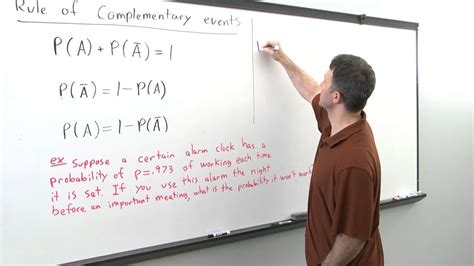 Rule of Complementary events
P(A) + P(Ā) = 1
P(Ā) = 1 – P(A)
P(A) = 1 – P(Ā)
ex Suppose a certain alarm clock has a
probability of P=.973 of working each time
it is set. If you use this alarm the night
before an important meeting, what is the probability it won't work?